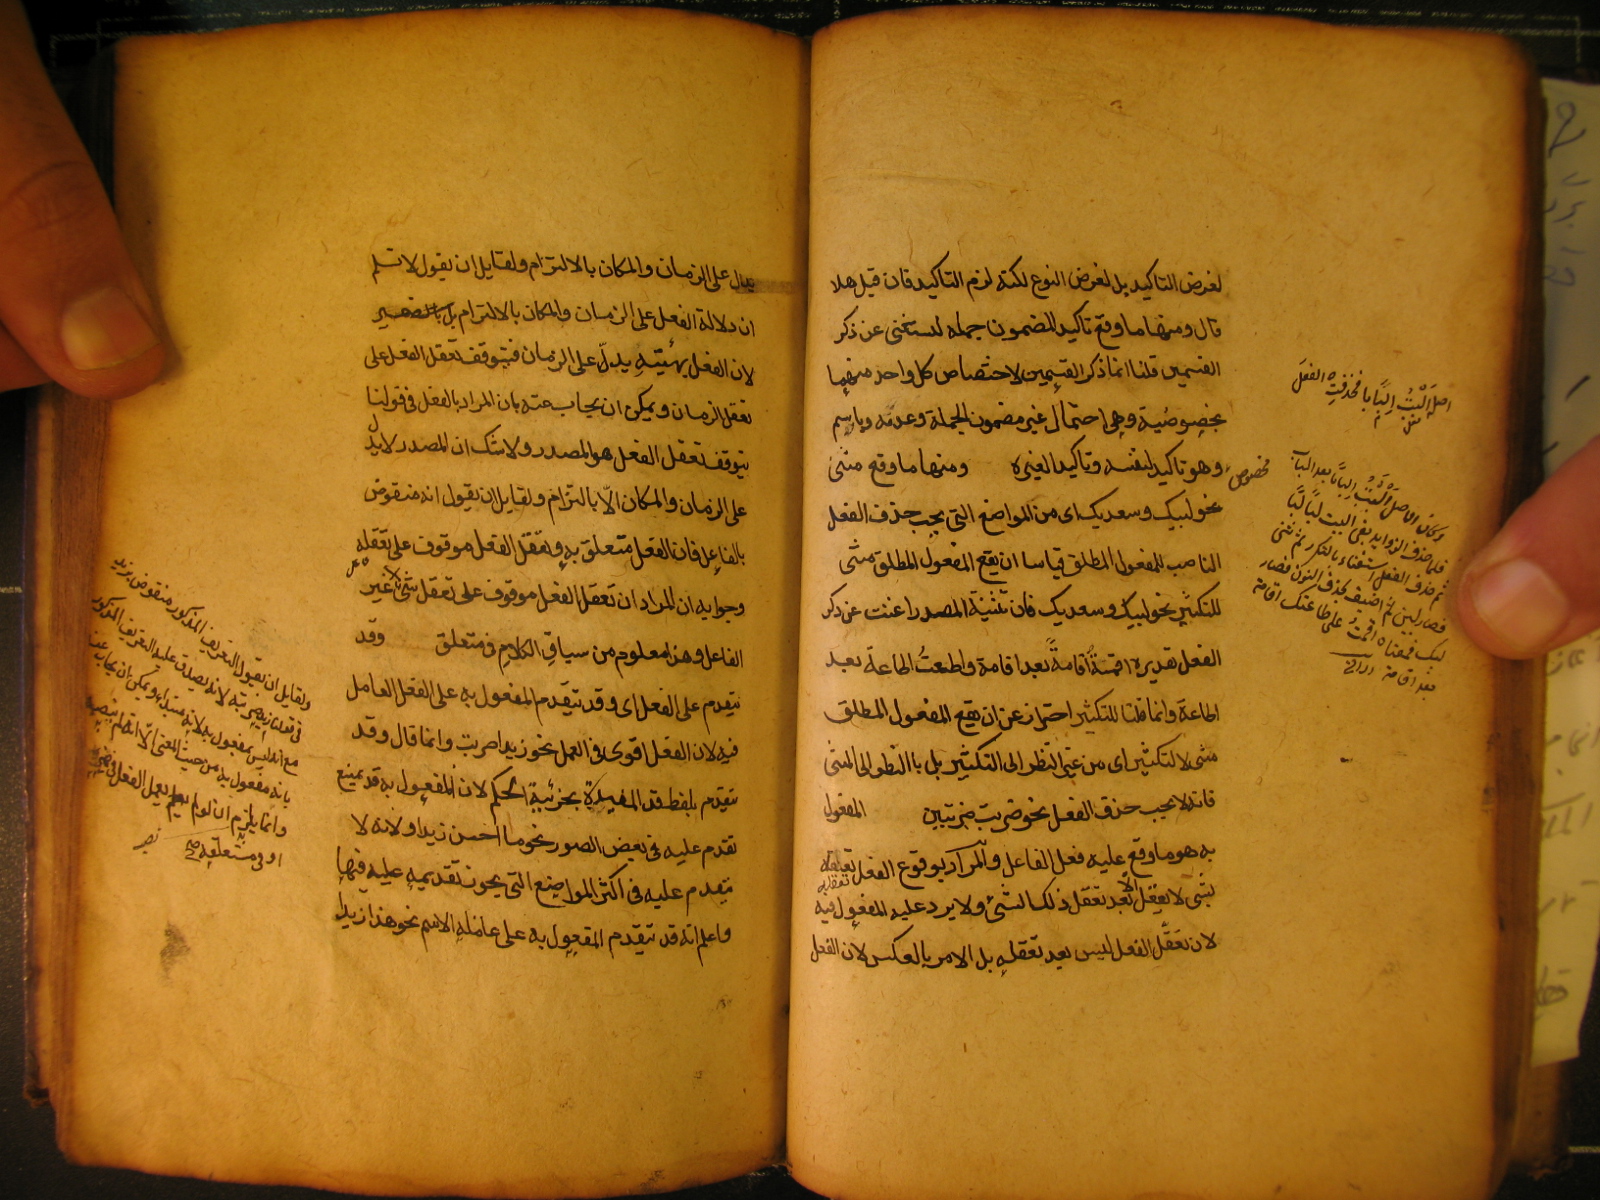 لغرض التاكيد بل لغرض النوع لكنه لزم التاكيد فان قيل هلا
قال ومنها ما وقع تاكيد المضمون جمله ليستغنى عن ذكر
القسمين قلنا انما ذكر القسمين لاختصاص كل واحد منهما
بخصوصية وهي احتمال غير مضمون الجملة وعدمه وباسم
مخصوص وهو تاكيد لنفسه وتاكيد لغيره ومنها ما وقع مثنى
نحو لبيك وسعديك اى من المواضع التي يجب حذف الفعل
الناصب للمفعول المطلق قياسا ان يقع المفعول المطلق مثنى
للتكثير نحو لبيك وسعديك فان تثنية المصدر اغنت عن ذكر
الفعل تقديره اقمت اقامةً بعد اقامة واطعتُ اطاعة بعد
اطاعة وانما قلنا للتكثير احتراز عن ان يقع المفعول المطلق
مثنى لا للتكثير اى من غير النظر الى التكثير بل بالنظر الى المثنى
فانه لا يجب حذف الفعل نحو ضربت ضربتين المفعول
به هو ما وقع عليه فعل الفاعل والمراد بوقوع الفعل تعلقه
بشئ لا يعقل الا بعد تعقل ذلك الشئ ولا يرد عليه المفعول فيه
لان تعقّل الفعل ليس بعد تعقله بل الامر بالعكس لان الفعل
اصل البّتُ اِلبابا فحذفت الفعل
وكان الاصل اَلْبَبْتُ اِلبابًا بعد الباب
فلما حذف الزوايد بقى البيت لبًّا لبًّا
ثم حذف الفعل استغناء بالتكرر ثم ثنى
فصار لبين ثم اضيف فحذف النون فصار
لبيك فمعناه اقمتُ على طاعتك اقامة
بعد اقامة
يدل على الزمان والمكان بالالتزام ولقايل ان يقول لا نسلم
ان دلالة الفعل على الزمان والمكان بالالتزام بل
لان الفعل بهيئته يدلّ على الزمان فيتوقف تعقل الفعل على
تعقل الزمان ويمكن ان يجاب عنه بان المراد بالفعل في قولنا
يتوقف تعقل الفعل هو المصدر ولا شك ان المصدر لا يدل
على الزمان والمكان الّا بالتزام ولقايل ان يقول انه منقوض
بالفاعل فان الفعل متعلق به وتعقل الفعل موقوف على تعقله
وجوابه ان المراد ان تعقل الفعل موقوف على تعقل شئ غير
الفاعل وهذا معلوم من سياق الكلام في متعلق وقد
يتقدم على الفعل اى وقد يتقدم المفعول به على الفعل العامل
فيه لان الفعل اقوى في العمل نحو زيدا ضربت وانما قال وقد
يتقدم بلفظ قد المفيدة بجزئية الحكم لان المفعول به قد يمنع
تقدم عليه في بعض الصور نحو ما احسن زيدا ولانه لا
يتقدم عليه في اكثر المواضع التي يجوز تقديمه عليه فيها
واعلم انه قد يتقدم المفعول به على عامله الاسم نحو هذا زيدا
ولقايل ان يقول التعريف المذكور منقوض بزيد
في قولنا زيد ضربته لانه يصدق عليه التعريف المذكور
مع انه ليس بمفعول به لانه مبتداء ويمكن ان يجاب عن
بانه مفعول به من حيث المعنى الّا انه
وانما يلزم ان لو لم يعمل الفعل في ضميره
او في متعلقه